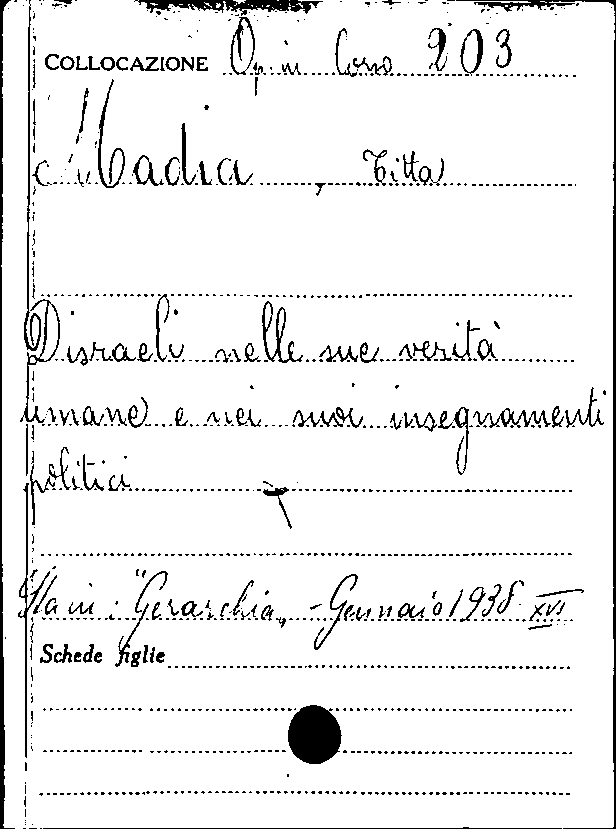 COLLOCAZIONE Op. in Corso 203
Madia, Titta
Disraeli nelle sue verità
umane e nei suoi insegnamenti
politici
Sta in: "Gerarchia„ - Gennaio 1938 XVI
Schede figlie